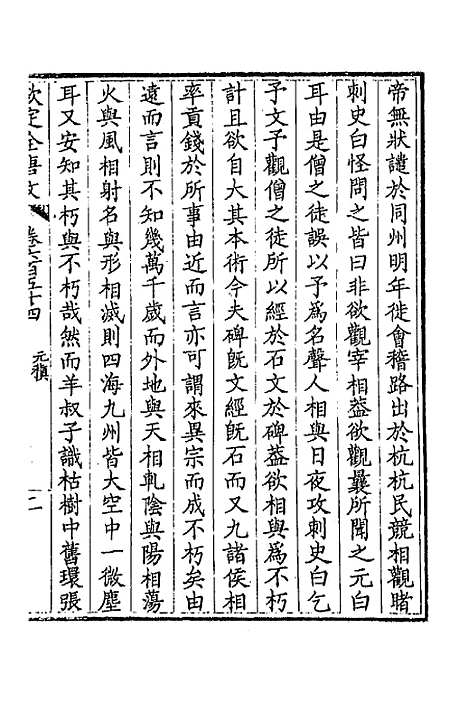 帝無狀譴於同州明年徙會稽路出於杭杭民競相觀睹
刺史白怪問之皆曰非欲觀宰相葢欲觀曩所聞之元白
耳由是僧之徒誤以予爲名聲人相與日夜攻刺史白乞
予文予觀僧之徒所以經於石文於碑葢欲相與爲不朽
計且欲自大其本術今夫碑旣文經旣石而又九諸侯相
率貢錢於所事由近而言亦可謂來異宗而成不朽矣由
遠而言則不知幾萬千歲而外地與天相軋陰與陽相蕩
火與風相射名與形相滅則四海九州皆大空中一微塵
耳又安知其朽與不朽哉然而羊叔子識枯樹中舊環張
欽定全唐文 卷六百五十四 元稹 二